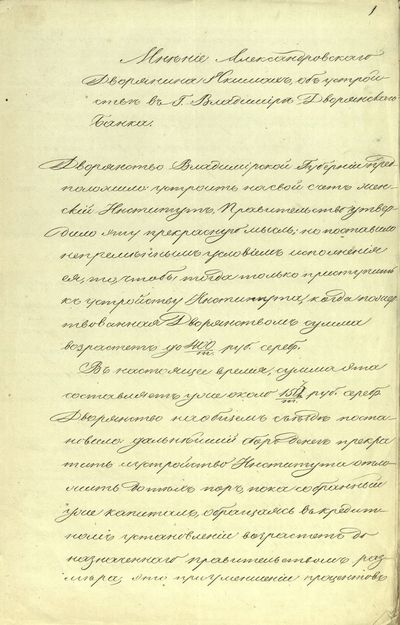 1
Мнѣніе Александровскаго
Дворянина Акимова, объ устрой
ствѣ въ Г. Владимірѣ Дворянскаго
Банка.
Дворянство Владимірской Губерніи пред
положило устроить на свой счетъ жен
скій Институтъ. Правительство утвер
дило эту прекрасную мысль; но поставило
непремѣннымъ условіемъ исполненія
ея, то, чтобы тогда только приступить
къ устройству Института, когда пожер
твованная Дворянствомъ сумма
возрастетъ до 400 т. руб. серебр.
Въ настоящее время, сумма эта
составляетъ уже около руб. серебр.
Дворянство на общемъ съѣздѣ поста
новило дальнѣйшій сборъ денегъ прекра
тить и устройство Института отло
жить до тѣхъ поръ, пока собранный
уже капиталъ, обращаясь въ кредит
номъ установленіи возрастетъ до
назначеннаго правительствомъ раз
мѣра; это при уменьшеніи процентовъ